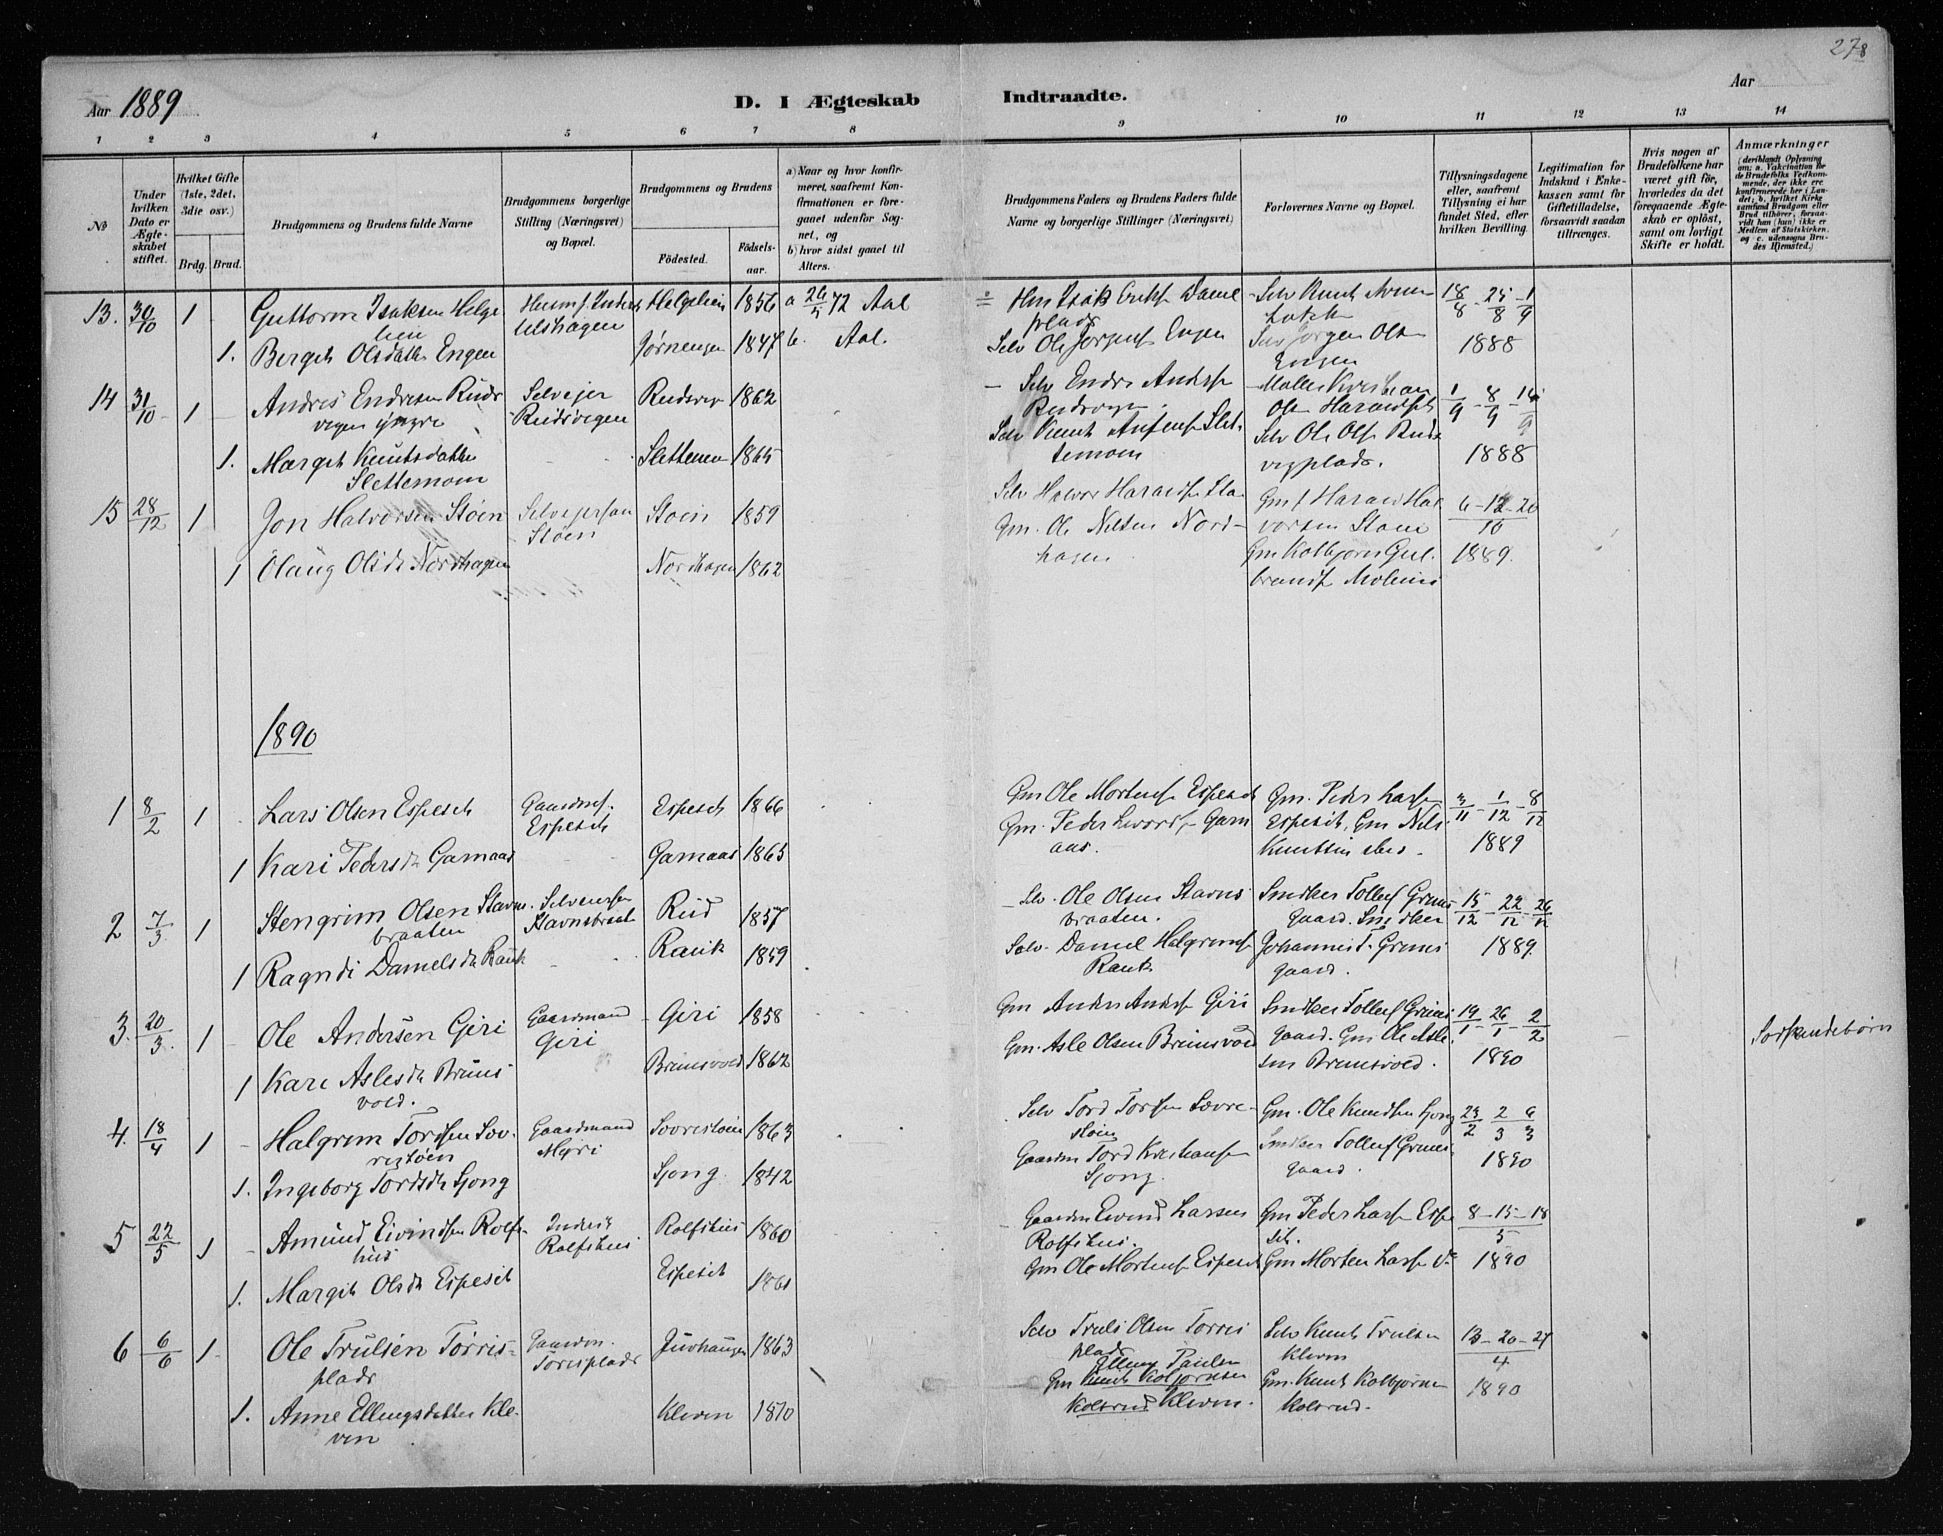 278
Aar 1889
D. I Ægteskab Indtraadte.
Aar
1 2 3 4 5 6 7 8 9 10 11 12 13 14
№
Under hvilken Dato er Ægteskabet stiftet.
Hvilket Gifte (1ste, 2det, 3die osv.)
Brdg. Brud.
Brudgommens og Brudens fulde Navne
Brudgommens borgerlige Stilling (Næringsvei) og Bopæl.
Brudgommens og Brudens
Födested.
Födselsaar.
a) Naar og hvor konfirmeret, saafremt Konfirmationen er foregaaet udenfor Sognet, og
b) hvor sidst gaaet til Alters.
Brudgommens Faders og Brudens Faders fulde Navne og borgerlige Stillinger (Næringsvei)
Forlovernes Navne og Bopæl.
Tillysningsdagene eller, saafremt Tillysning ei har fundet Sted, efter hvilken Bevilling.
Legitimation for Indskud i Enkekassen samt for Giftetilladelse, forsaavidt saadan tiltrænges.
Hvis nogen af Brudefolkene har været gift før, hvorledes da det foregaaende Ægteskab er oplöst, samt om lovligt Skifte er holdt.
Anmærkninger
(deriblandt Oplysning om: a. Vakcination for de Brudefolks Vedkommende, der ikke ere konfirmerede her i Landet; b. hvilket Kirkesamfund Brudgom eller Brud tilhörer, forsaavidt han (hun) ikke er Medlem af Statskirken, og c. udensogns Brudes Hjemsted.)
13. 30/10 1 Guttorm Isaksen Helgelien Helgelien 1856 a 26/5 72 Aal 18/8 - 25/8 - 1/9
1. Bergit Olsdatter Engen Jørnengen 1847 b. Aal. Selv Ole Jørgens. Engen Selv Jørgen Ols. Engen 1888
14 31/10 1 Andres Endresen Rudsvegen yngre Selvejer Rudsvegen Rudsveg 1862 Selv Endre Anders. Rudsvegen 1/9 - 8/9 -
1. Margit Knutsdatter Slettemoen Slettemoen 1865 Selv Ole Ols. Rudsvegplads. 1888
15 28/12 1 Jon Halvorsen Støen Selvejersøn Støen Støen 1859 Gm. Ole Nilsen Nordhagen
1 Olaug Olsdt Nordhagen Nordhagen 1862 1889.
1890
1 8/2 1 Lars Olsen Espeset Gaardmf. Espeset Espeset 1866 Gm Ole Mortens. Espeset Gm. Peder Lars. Espeset, Gm Nils 3/11 - 1/12 - 8/12
1 Kari Pedersdt Garnaas Garnaas 1865 1889
2 7/3 1 Stengrim Olsen Stavnsbraaten Stavnsbraat Rud 1857 Selv. Ole Olsen Stavnsbraaten. Tollef Grimsgaard. 15/12 - 22/12 - 26/12
1 Ragndi Danielsdt Rauk Rauk 1859 Selv. Daniel Halgrims. Rauk Johannes T. Grimsgaard. 1889.
3. 20/3 1 Ole Andersen Giri Gaardmand Giri Giri 1858 Gm Anders Anders. Giri Tollef Grimsgaard. Gm Ole Aslesen Brunsvold. 19/1 - 26/1 - 2/2 Sødskendebørn
1 Kari Aslesdt Brunsvold. Brunsvold 1862 Gm. Asle Olsen Brunsvold 1890
4. 18/4 1 Halgrim Tordsen Sevrestøen Gaardmand Myri 1863 Selv Tord Tordsen Sevrestøen Gm. Ole Knudsen Sjong 23/2 2/3 6/3
1. Ingeborg Tordsdt Sjong Sjong 1842 Gaardm Tord Kristians. Sjong. Tollef Grimsgaard. 1890
5 22/5 1 Amund Eivindsen Rolfshus Inderst Rolfshus Rolfshus 1860 Gaardm Eivind Larsen Rolfshus. Gm Peder Lars. Espeset. 8-15-18/5
1. Margit Olsdt Espeset Espeset 1861 Gm Ole Mortens. Espeset Gm Morten Lars. 1890
6 6/6 1 Ole Trulsen Tørrisplads Gaardm. Torisplads Juvhaugen 1863 Selv Truls Olsen Torrisplads Selv Knut Trulsen Kleven 13-20-27/4
1. Anne Ellingsdatter Kleven Kleven 1870 Elling Paulsen Gm Knut Kolbjørnsen Kolsrud Kleven. Gm. Knut Kolbjørnsen Kolsrud. 1890